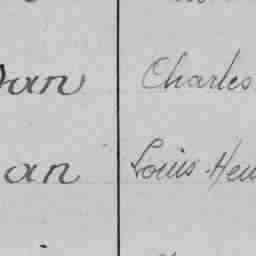 an Charles
an Louis-Hen